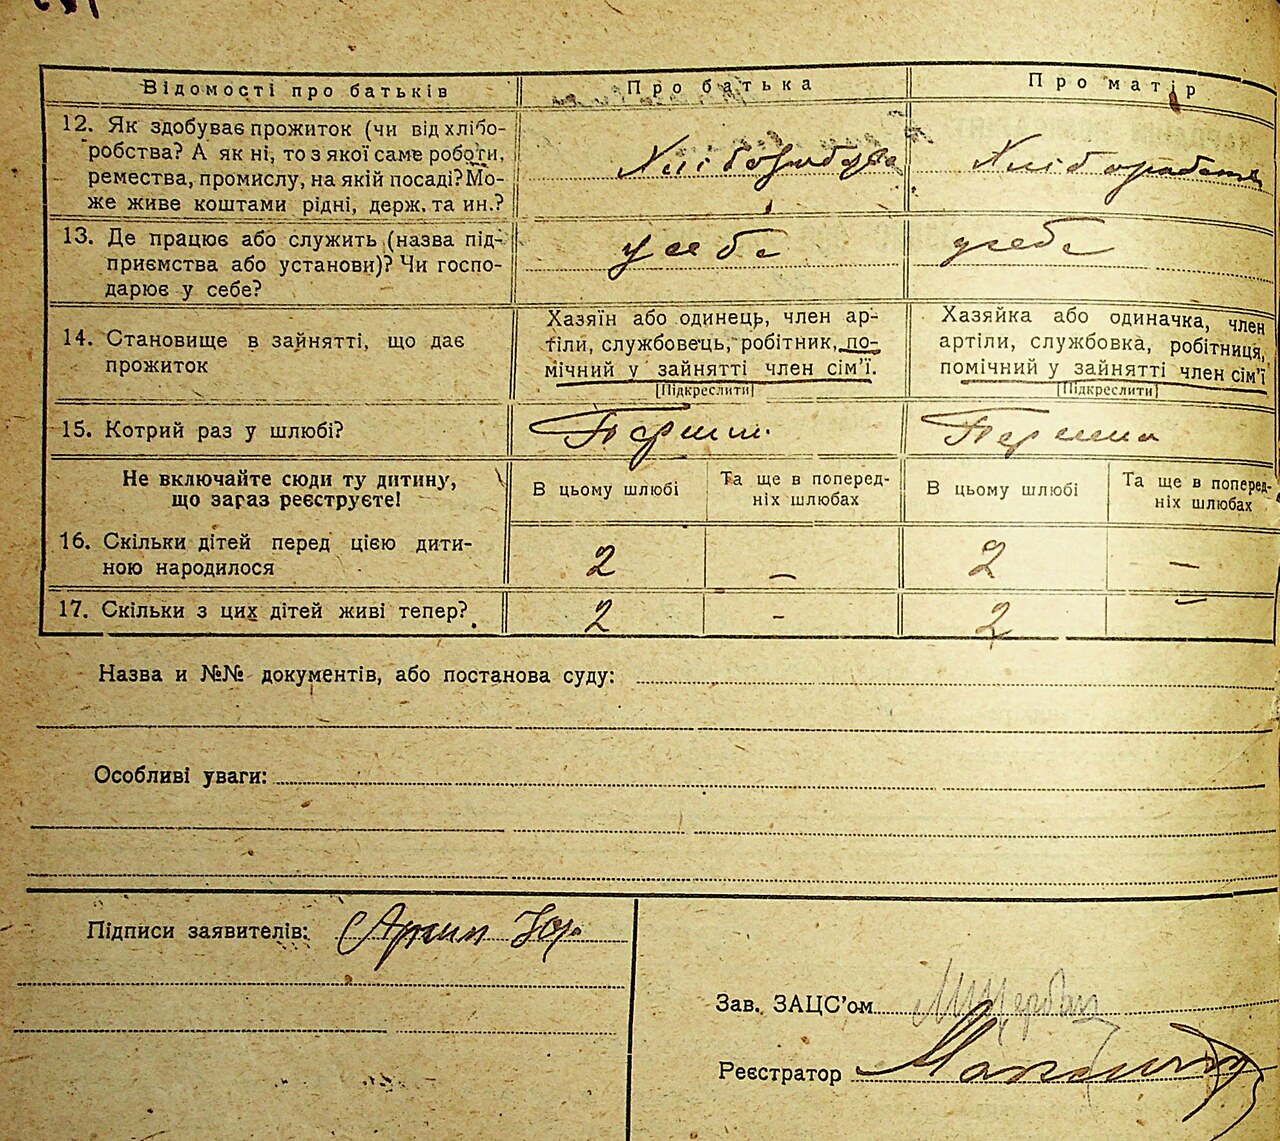 Відомості про батьків
Про батька
Про матір
12. Як здобуває прожиток (чи від хлібо-
робства? А як ні, то з якої саме роботи,
ремества, промислу, на якій посаді? Мо-
же живе коштами рідні, держ. та ин.?
13. Де працює або служить (назва під-
приємства або установи)? Чи госпо-
дарює у себе?
у себе
у себе
14. Становище в зайнятті, що дає
прожиток
Хазяїн або одинець, член ар-
тіли, службовець, робітник, по-
мічний у зайнятті член сім'ї.
[Підкреслити]
Хазяйка або одиначка, член
артіли, службовка, робітниця,
помічний у зайнятті член сім'ї
[Підкреслити]
15. Котрий раз у шлюбі?
Не включайте сюди ту дитину,
що зараз реєструєте!
В цьому шлюбі
Та ще в поперед-
ніх шлюбах
В цьому шлюбі
Та ще в поперед-
ніх шлюбах
16. Скільки дітей перед цією дити-
ною народилося
2
–
2
–
17. Скільки з цих дітей живі тепер?
2
–
2
–
Назва и №№ документів, або постанова суду:
Особливі уваги:
Підписи заявителів:
Зав. ЗАЦС'ом
Реєстратор